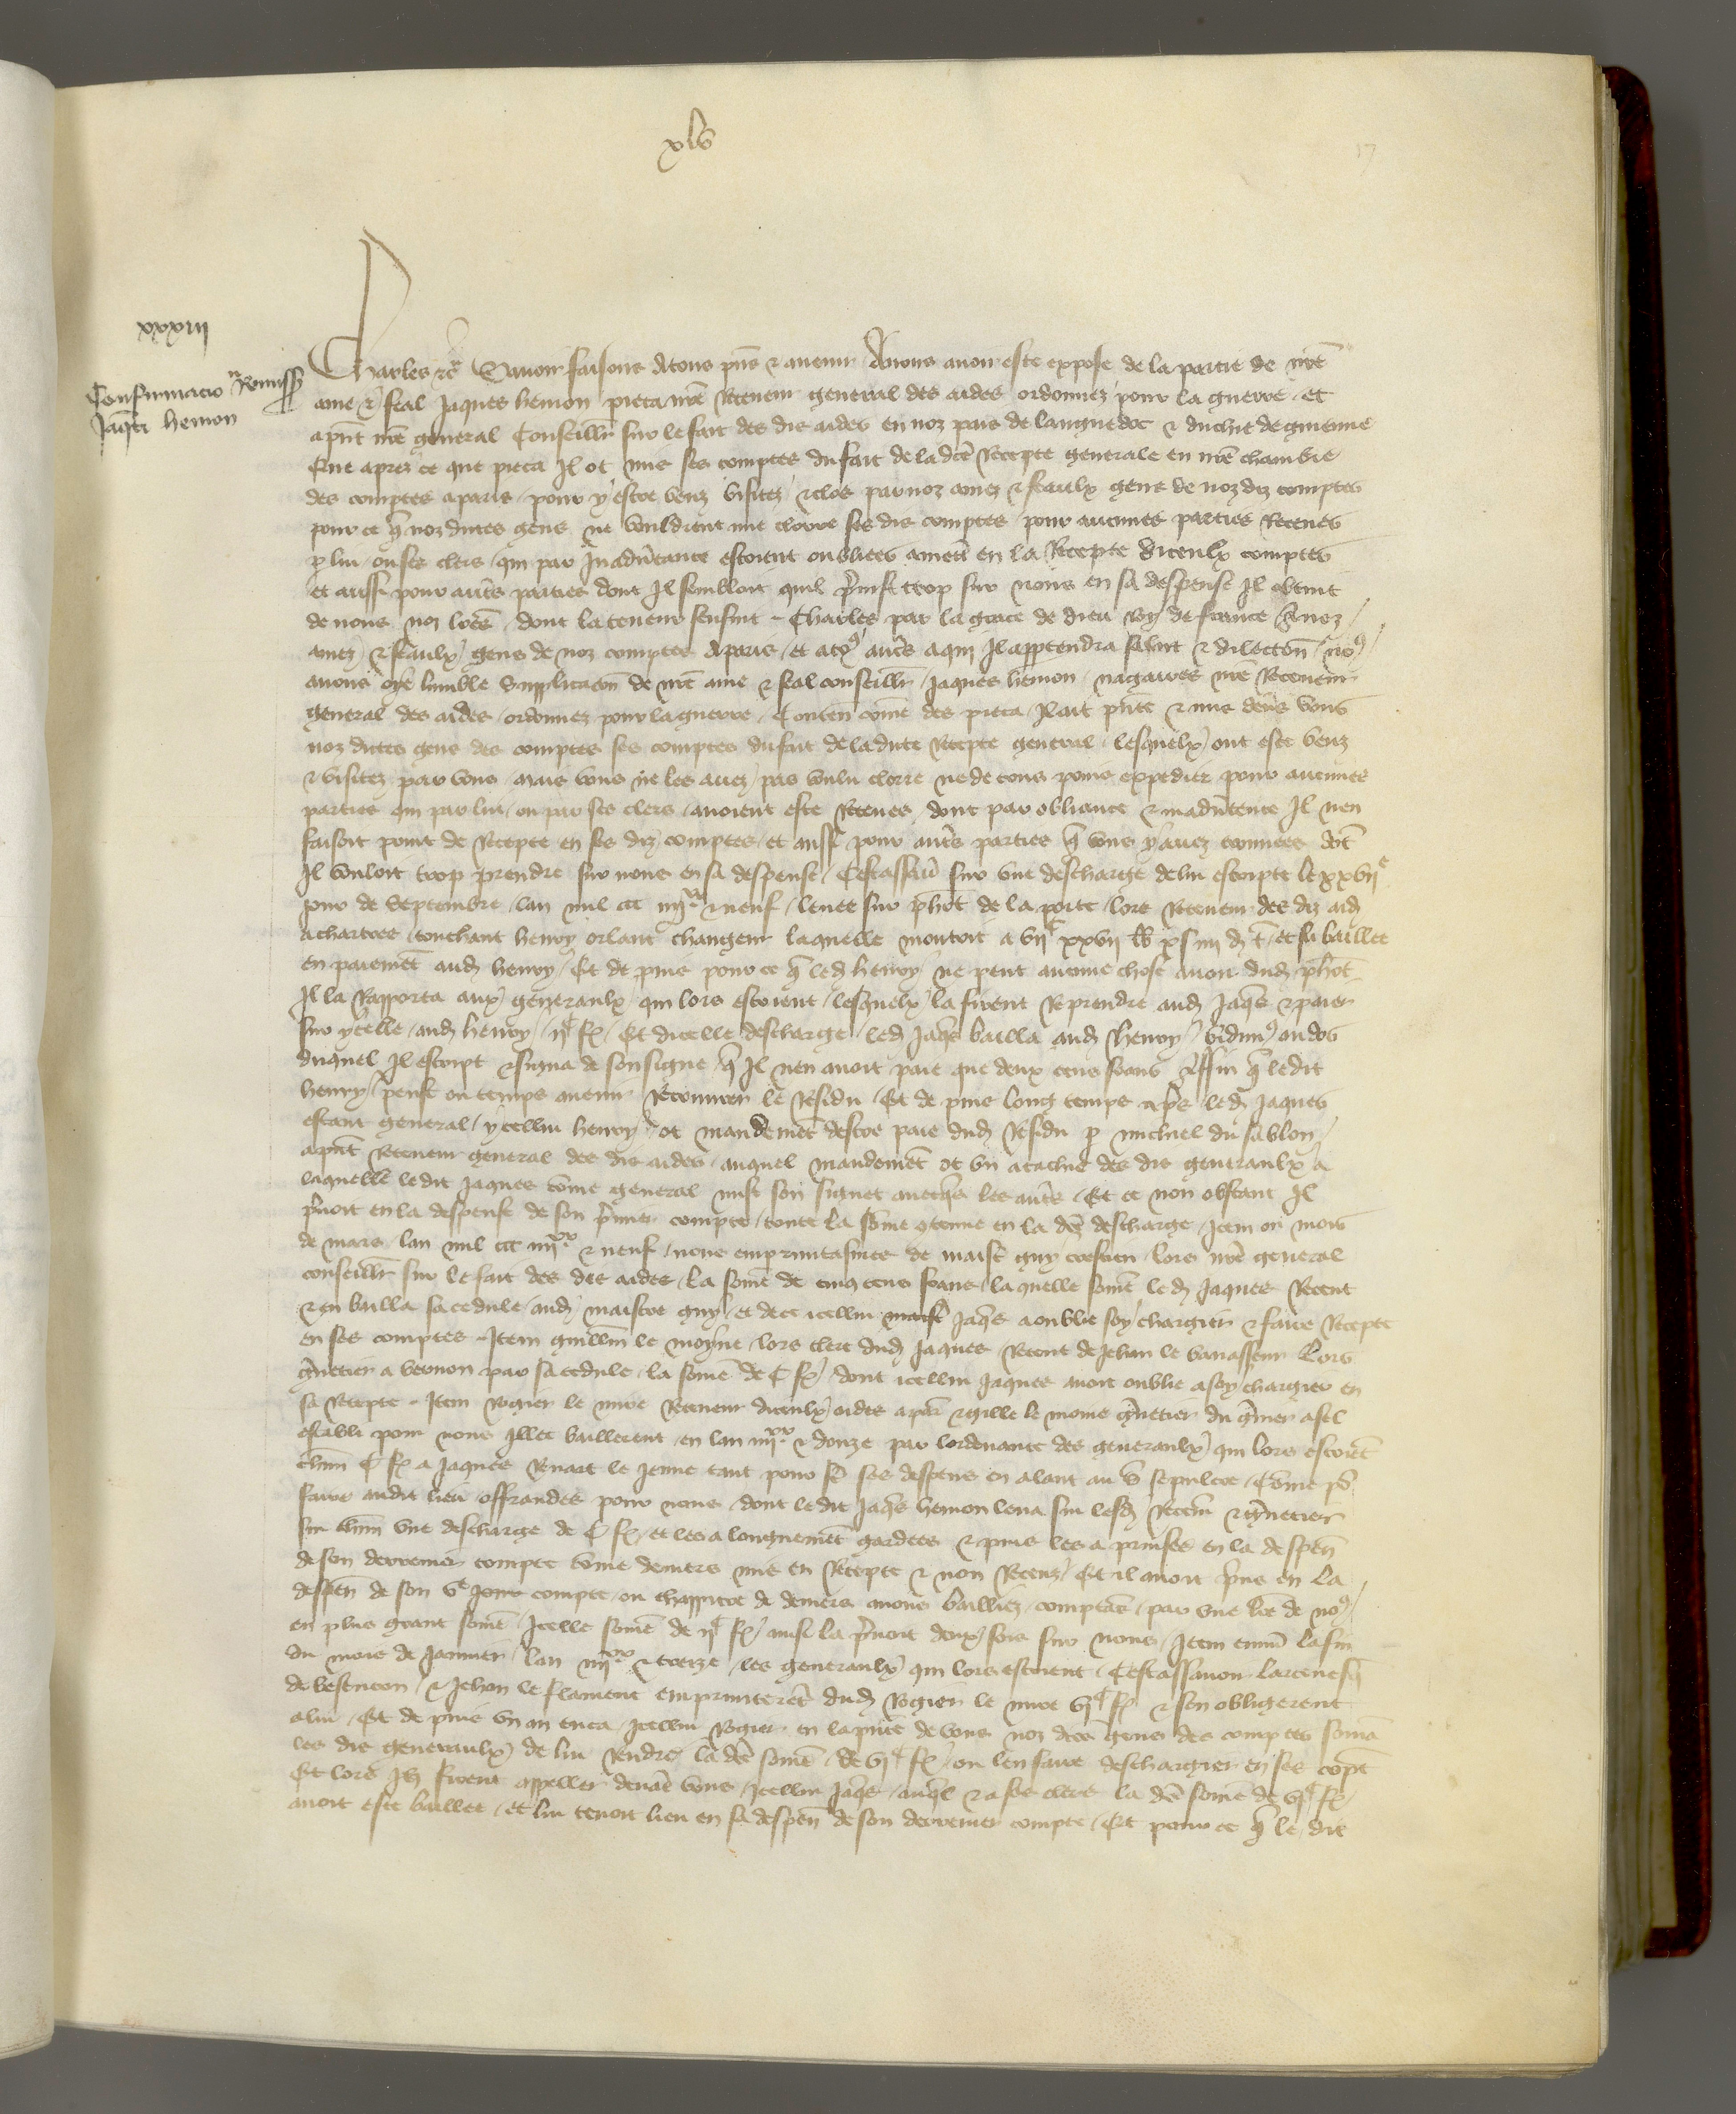 xlv
17
xxxiii
Confirmacio Remiss
Jaqti hemon
Charles etc Savoir faisons Atous pns & avenir Anous avoir este expose de la partie de nre
ame & feal Jaques hemon pieca nre Receveur general des aides ordonnez pour la guerre et
apnt nre general Conseillr sur le fait des dis aides en noz pais de languedoc & duchie de guienne
Que apres ce que pieca Il ot mis ses comptes du fait de ladce Recepte generale en nre chambre
des comptes aparis pour y estre veuz visitez & clos par noz amez & feaulx gens de noz diz comptes
pour ce q noz dites gens ne vouldrent mie clorre ses dis comptes pour aucunes parties Receues
p lui ou ses clers qui par Inadvtance estoient oubliees amett en la Recepte diceulx comptes
et aussi pour autrs parties dont Il sembloit quil prinst trop sur nous en sa despense Il obtint
de nous noz lres dont la teneur sensuit Charles par la grace de dieu Roy de france Anoz
amez & feaulx gens de noz comptes Aparis et atoz autrs aqui Il appartendra salut & dilection no9
avons oye lumble supplicacon de nre ame & feal conseillr Jaques hemon nagaires nre Receveur
general des aides ordonnez pour la guerre Conten come des pieca Il ait pnte & mis devs vous
noz dites gens des comptes ses comptes du fait de ladite Recepte general lesquelx ont este veuz
& visitez par vous mais vous ne les avez pas voulu clorre ne de tous poins expedier pour aucunes
parties qui par lui ou par ses clers avoient este Receues dont par obliance & inadvtence Il nen
faisoit point de Recepte en ses diz comptes et aussi pour autrs parties q vous y avez trouvees dot
Il vouloit trop prendre sur nous en sa despense Cestassavr sur une descharge de lui escripte le xxviie
jour de Septembre lan mil ccc iiiixx & neuf levee sur phot de la porte lors Receveur des diz aid
achartres touchant henry orlant changeur laquelle montoit a viic xxvii lb xs iiii d t et fu baillee
en paiement aud henry Et de puis pour ce q led henry ne peut aucune chose avoir dud phot
Il la Rapporta aux generaulx qui lors estoient lesquelx la firent Reprendre aud Jaqs & paier
sur ycelle aud henry iic fr Et dicelle descharge led Jaqs bailla aud henry vidim9 au dos
duquel Il escript & signa de son signe q Il nen avoit paie que deux cens frans affin q ledit
henry peust ou temps avenir Recouvrer le Residu Et de puis long temps aps led Jaques
estant general ycellui henry ot mandemet destre paie dud Residu p michiel du sablon
apnt Receveur general des dis aides auquel mandement ot un atache des dis generaulx a
laquelle ledit Jaques come general mist son signet avecqs les autrs Et ce non obstant Il
prnoit en la despense de son prmier compte toute la some 9tenue en la dce descharge Item ou mois
de mars lan mil ccc iiiixx & neuf nous empruntasmes de maist guy crestien lors nre general
conseillr sur le fait des dis aides la some de cinq cens frans laquelle some led Jaques Receut
& en bailla sa cedule aud maistre guy et de ce icellui maist Jaqs a oublie soy chargier & faire Recepte
en ses comptes Item guillm le moyne lors clerc dud Jaques Receut de Jehan le vavasseur Lors
grnetier a vernon par sa cedule la some de C fr dont icellui Jaques avoit oublie a soy chargier en
sa Recepte Item Rogier le mire Receveur diceulx aides apar & gille le moine grnetier du grnier asel
establi pour nous Illec baillerent en lan iiiixx & douze par lordenance des generaulx qui lors estoiet
chun C fr a Jaques Renart le Jeune tant pour ses despens en alant au st sepulcre Come po
faire audit lieu offrandes pour nous dont ledit Jaqs hemon leva sur lesd Recevr & grnetier
sur chun une descharge de C fr et les a longuement gardees & puis les a prinses en la despen
de son derrenier compte come deniers mis en Recepte & non Receuz Et il avoit prns en la
despen de son ve jour compte ou chappitre de deniers anous bailliez comptans par une lre de no9
en plus grant some Icelle some de iic fr ainsi la prnoit deux fois sur nous Item envir la fin
du mois de Janvier lan iiiixx & treize les generaulx qui lors estoient Cestassavoir larcevesq
de besencon & Jehan le flament emprunteret dud Rogier le mire vic fr & son obligerent
alui Et de puis un an enca Icellui Rogier en la pnce de vous noz dces gens des comptes soma
les dis generaulx de lui Rendre la dce some de vic fr ou len faire deschargier en ses compt
Et lors Ilz firent appeller devat vous Icellui Jaqs auql & a ses clers la dce some de vic fr
avoit este baillee et lui tenoit lieu en sa despen de son derrenier compte Et pour ce q le dit